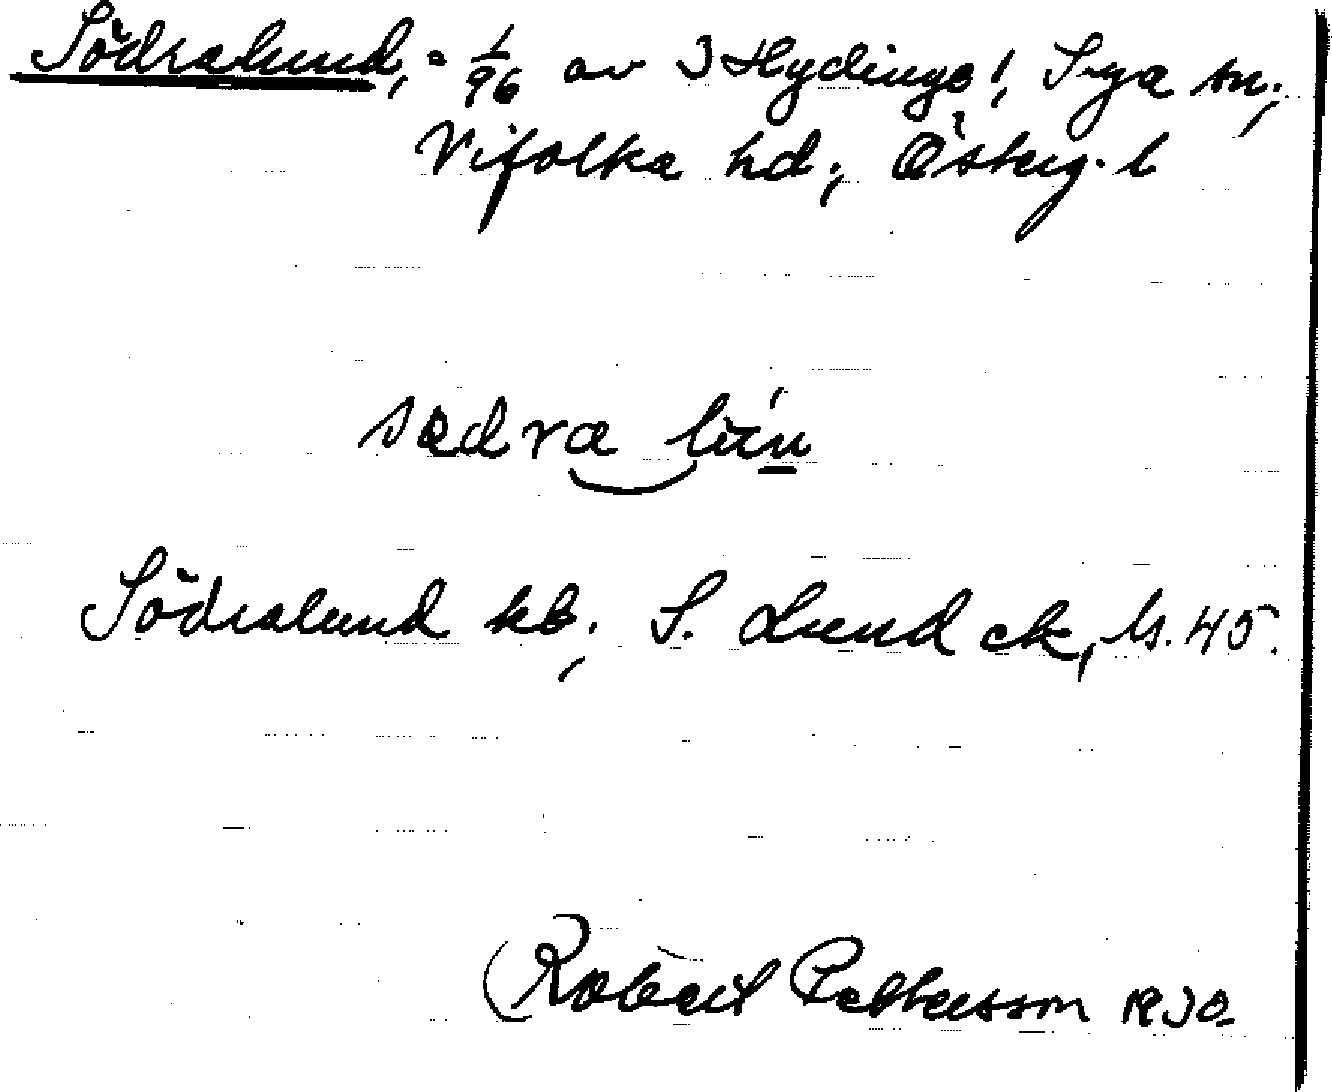 Södralund, = 1/96 av 3 Hydinge! Sya sn,
Vifolka hd., Österg. l
Södralund kb., S. Lund ek,
(Robert Pettersson 1930